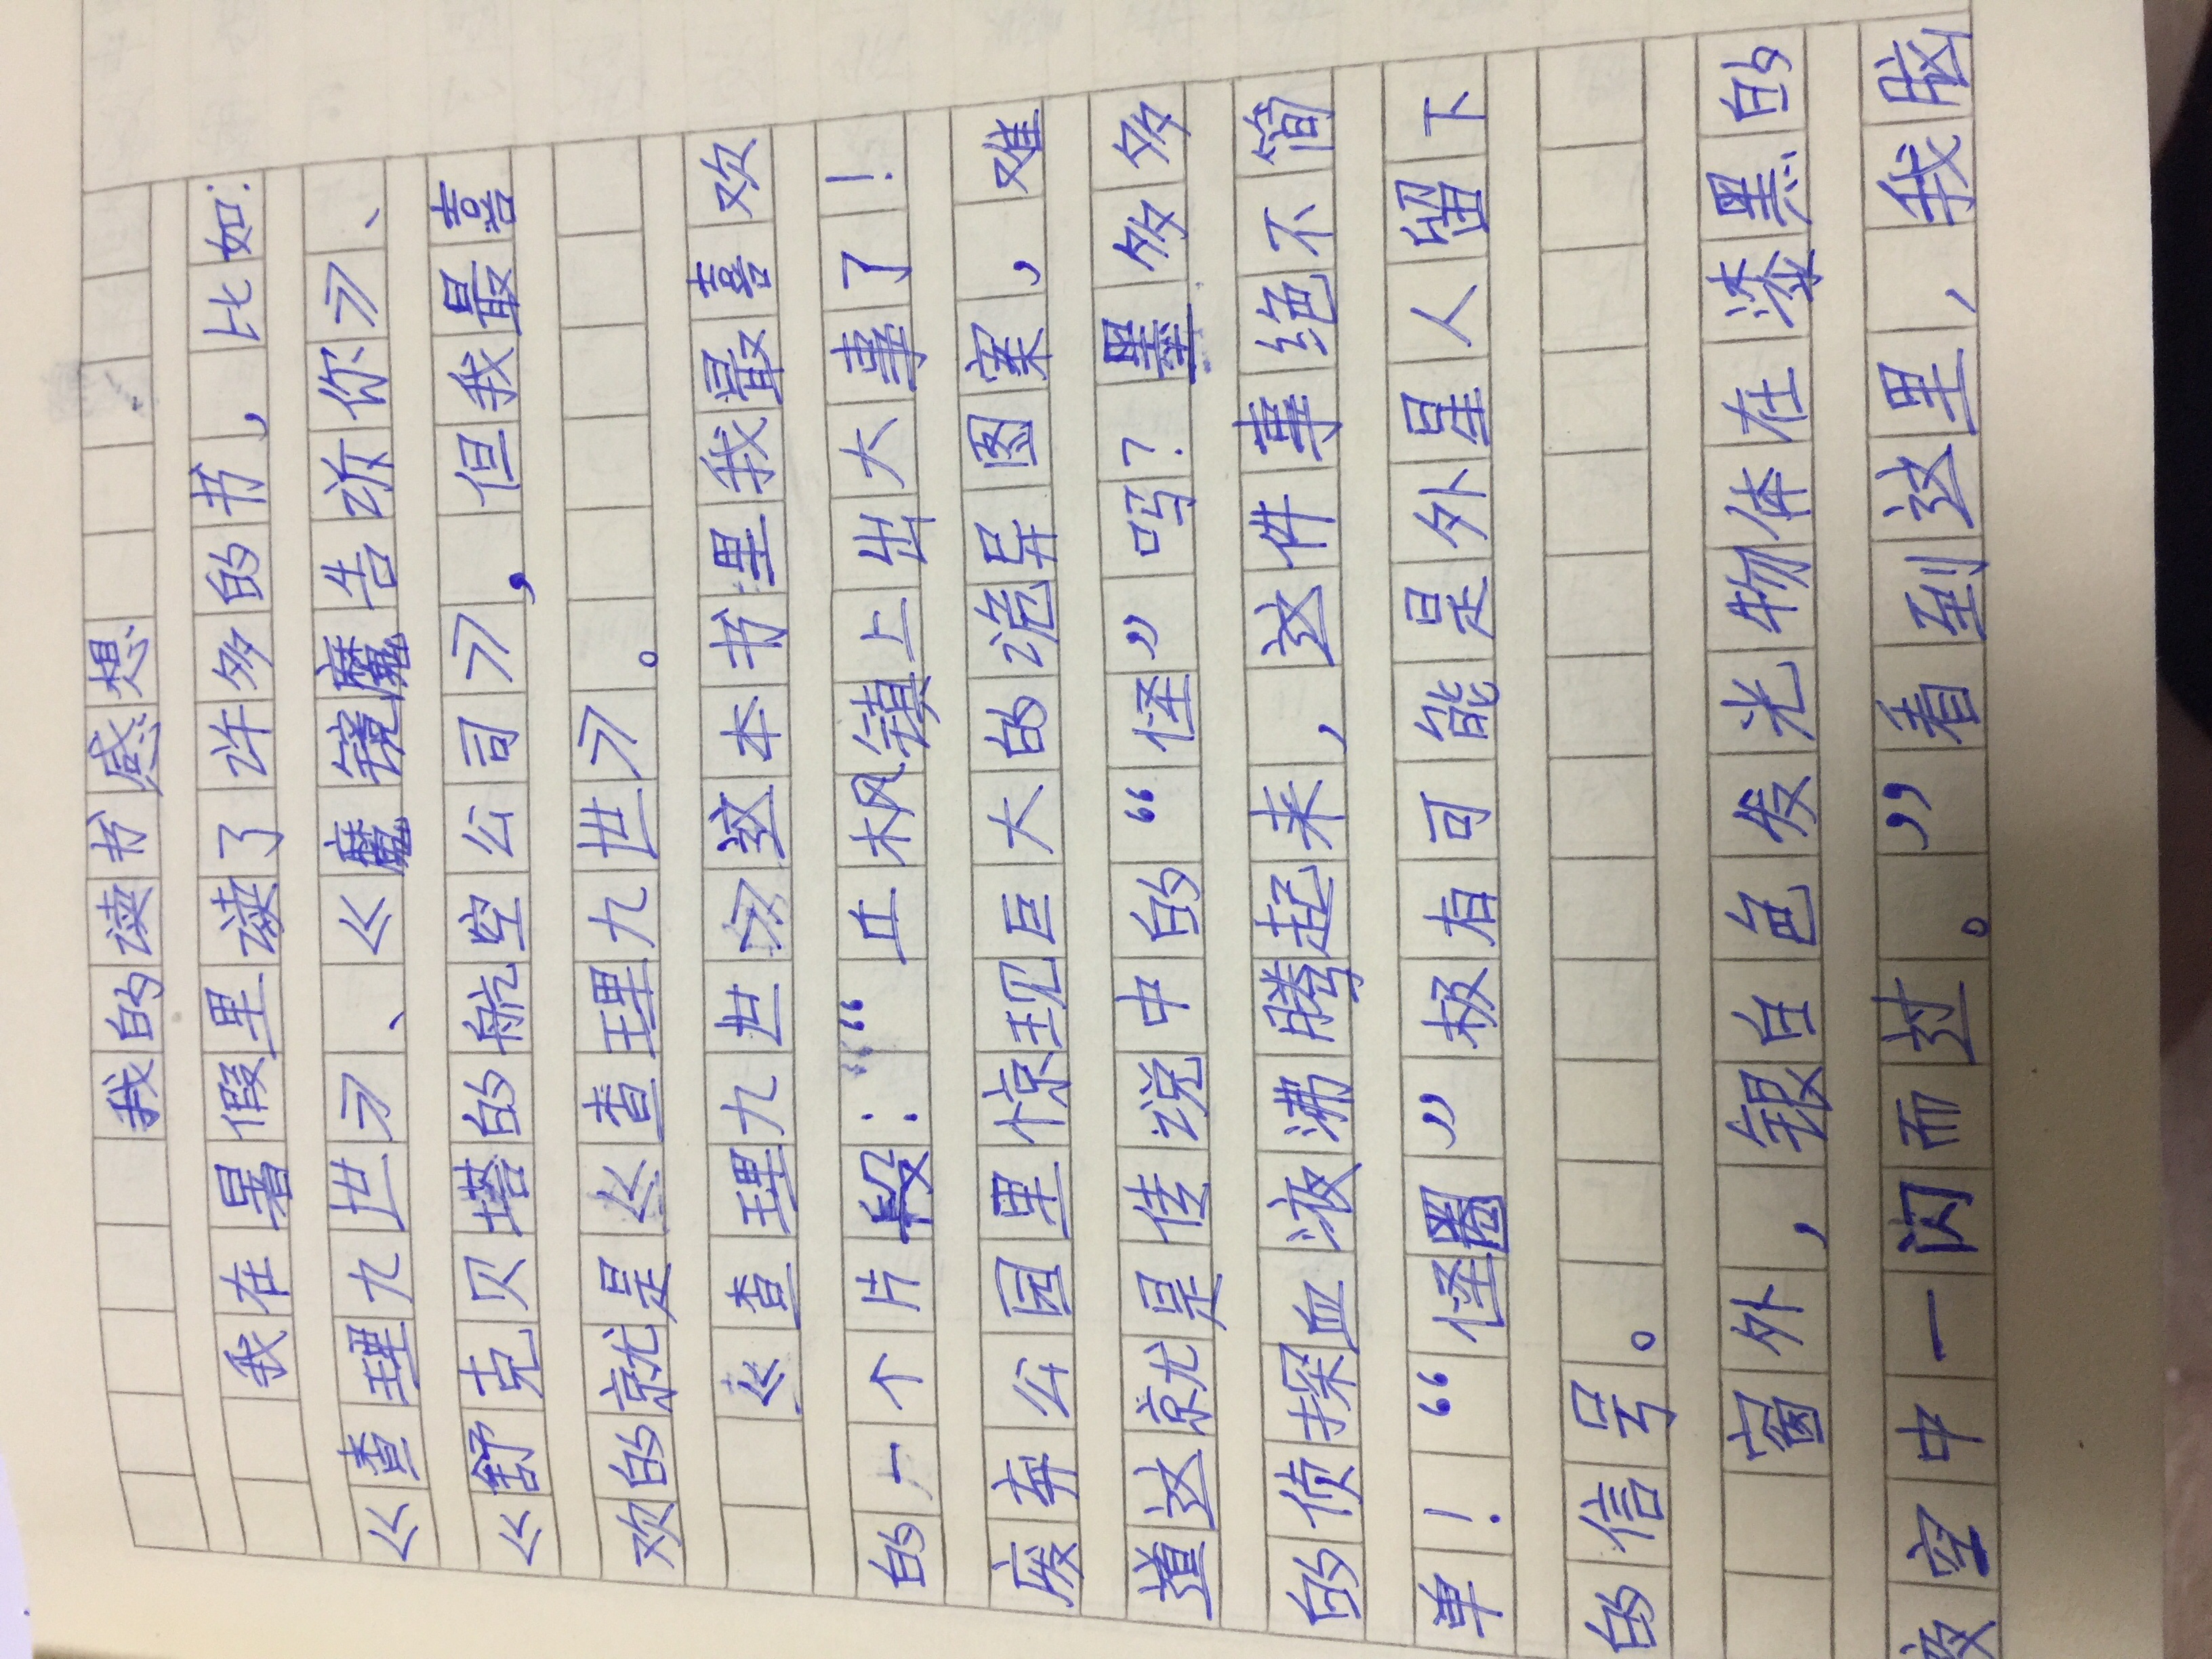 我的读书感想
我在暑假里读了许多的书，比如：
《查理九世》、《魔镜魔告诉你》、
《舒克贝塔的航空公司》，但我最喜
欢的就是《查理九世》。
《查理九世》这本书里我最喜欢
的一个片段：“丘枫镇上出大事了！
废弃公园里惊现巨大的诡异图案，难
道这就是传说中的“怪”吗？墨多多
的侦探血液沸腾起来，这件事绝不简
单！“怪圈”极有可能是外星人留下
的信号。
窗外，银白色发光物体在漆黑的
夜空中一闪而过。”看到这里，我脑